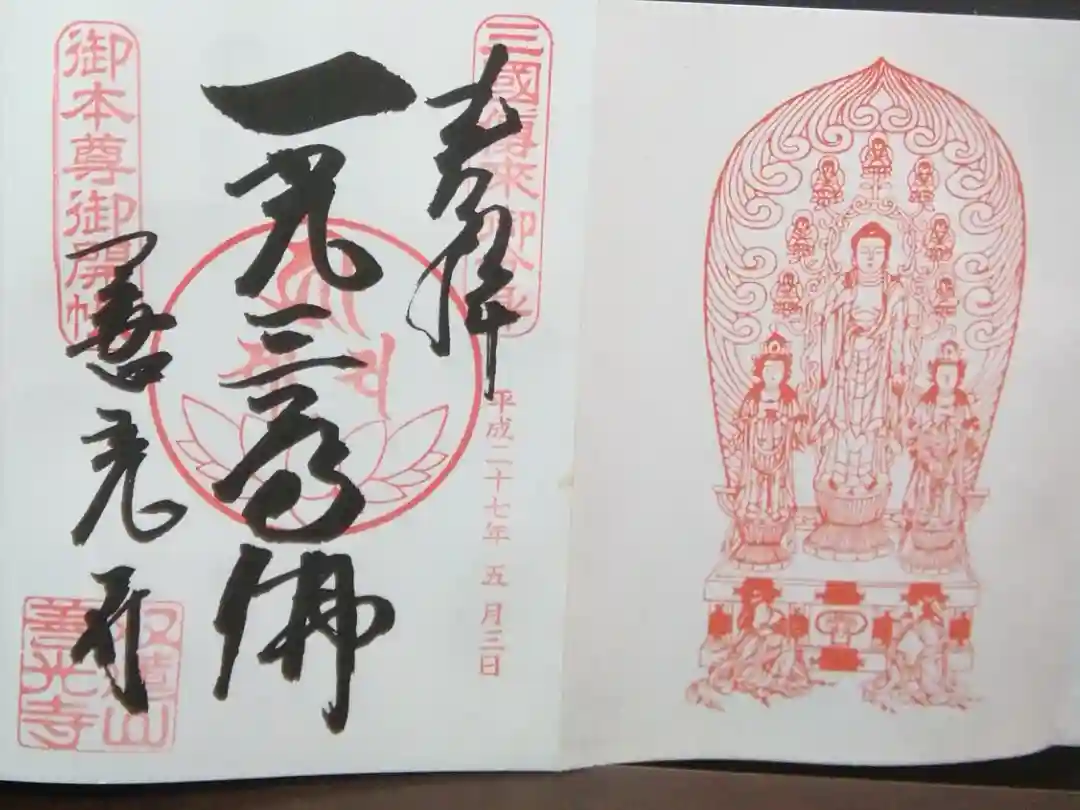 三國傳來御分身
奉拝
平成二十七年五月三日
一光三尊佛
御本尊御開帳
善光寺
双蓮山
善光寺